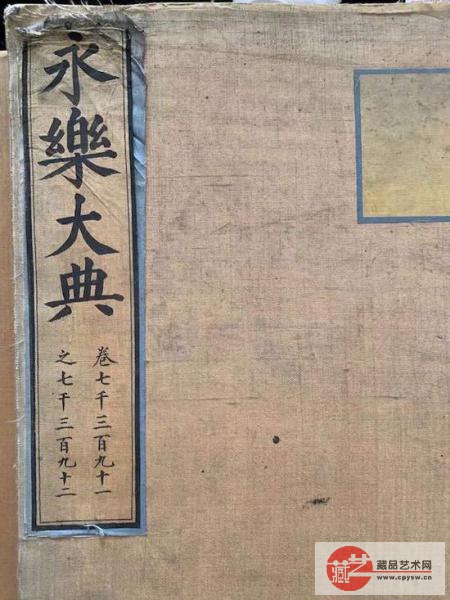 永樂大典
卷七千三百九十一
之七千三百九十二
藏品艺术网
www.cpysw.cn